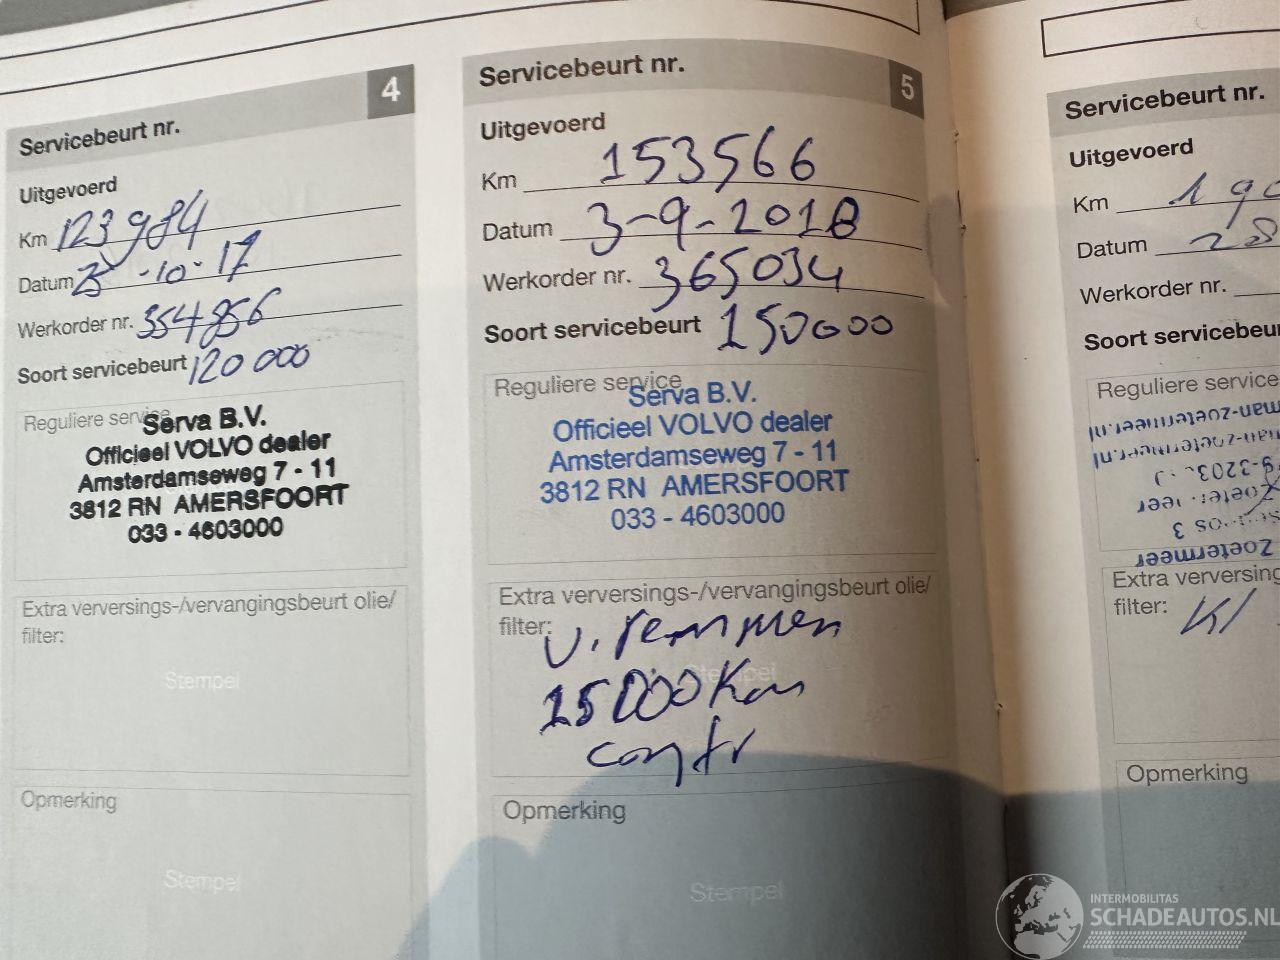 Servicebeurt nr. 4
Uitgevoerd
Km 123984
Datum -10-17
Werkorder nr. 354856
Soort servicebeurt 120 000
Reguliere service
Serva B.V.
Officieel VOLVO dealer
Amsterdamseweg 7 - 11
3812 RN AMERSFOORT
033 - 4603000
Extra verversings-/vervangingsbeurt olie/
filter:
Stempel
Opmerking
Stempel
Servicebeurt nr. 5
Uitgevoerd
Km 153566
Datum 3-9-2018
Werkorder nr. 365034
Soort servicebeurt 150000
Reguliere service
Serva B.V.
Officieel VOLVO dealer
Amsterdamseweg 7 - 11
3812 RN AMERSFOORT
033 - 4603000
Extra verversings-/vervangingsbeurt olie/
filter:
V. remmen
15000 Km
contr
Opmerking
Stempel
Servicebeurt nr.
Uitgevoerd
Km 190
Datum 28
Werkorder nr.
Soort servicebeur
Reguliere service
Zoetermeer
Extra versversing
filter: Kl
Opmerking
INTERMOBILITAS
SCHADEAUTOS.NL